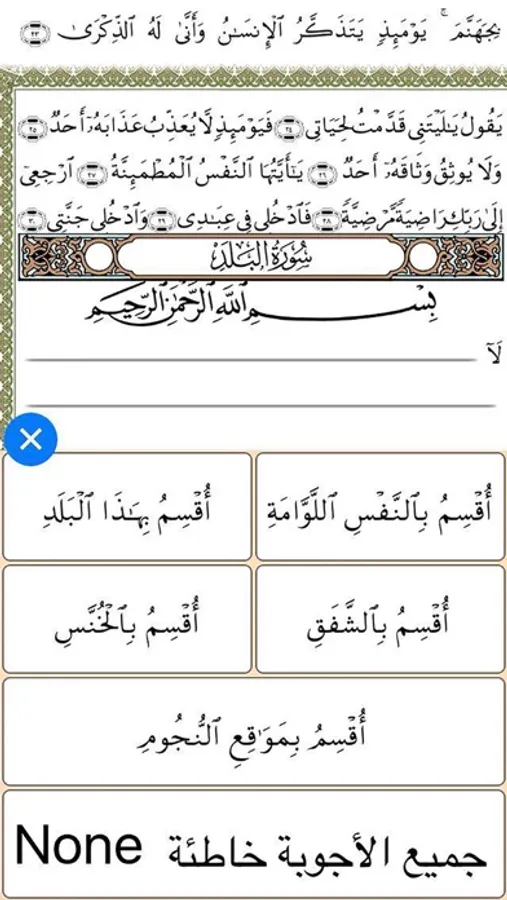 بِجَهَنَّمَ ۚ يَوْمَئِذٍ يَتَذَكَّرُ ٱلْإِنسَٰنُ وَأَنَّىٰ لَهُ ٱلذِّكْرَىٰ ٢٣
يَقُولُ يَٰلَيْتَنِى قَدَّمْتُ لِحَيَاتِى ٢٤ فَيَوْمَئِذٍ لَّا يُعَذِّبُ عَذَابَهُۥٓ أَحَدٌ ٢٥
وَلَا يُوثِقُ وَثَاقَهُۥٓ أَحَدٌ ٢٦ يَٰٓأَيَّتُهَا ٱلنَّفْسُ ٱلْمُطْمَئِنَّةُ ٢٧ ٱرْجِعِىٓ
إِلَىٰ رَبِّكِ رَاضِيَةً مَّرْضِيَّةً ٢٨ فَٱدْخُلِى فِى عِبَٰدِى ٢٩ وَٱدْخُلِى جَنَّتِى ٣٠
سُورَةُ البَلَدِ
بِسْمِ ٱللَّهِ ٱلرَّحْمَٰنِ ٱلرَّحِيمِ
لَآ
أُقْسِمُ بِٱلنَّفْسِ ٱللَّوَّامَةِ
أُقْسِمُ بِهَٰذَا ٱلْبَلَدِ
أُقْسِمُ بِٱلشَّفَقِ
أُقْسِمُ بِٱلْخُنَّسِ
أُقْسِمُ بِمَوَٰقِعِ ٱلنُّجُومِ
جميع الأجوبة خاطئة None